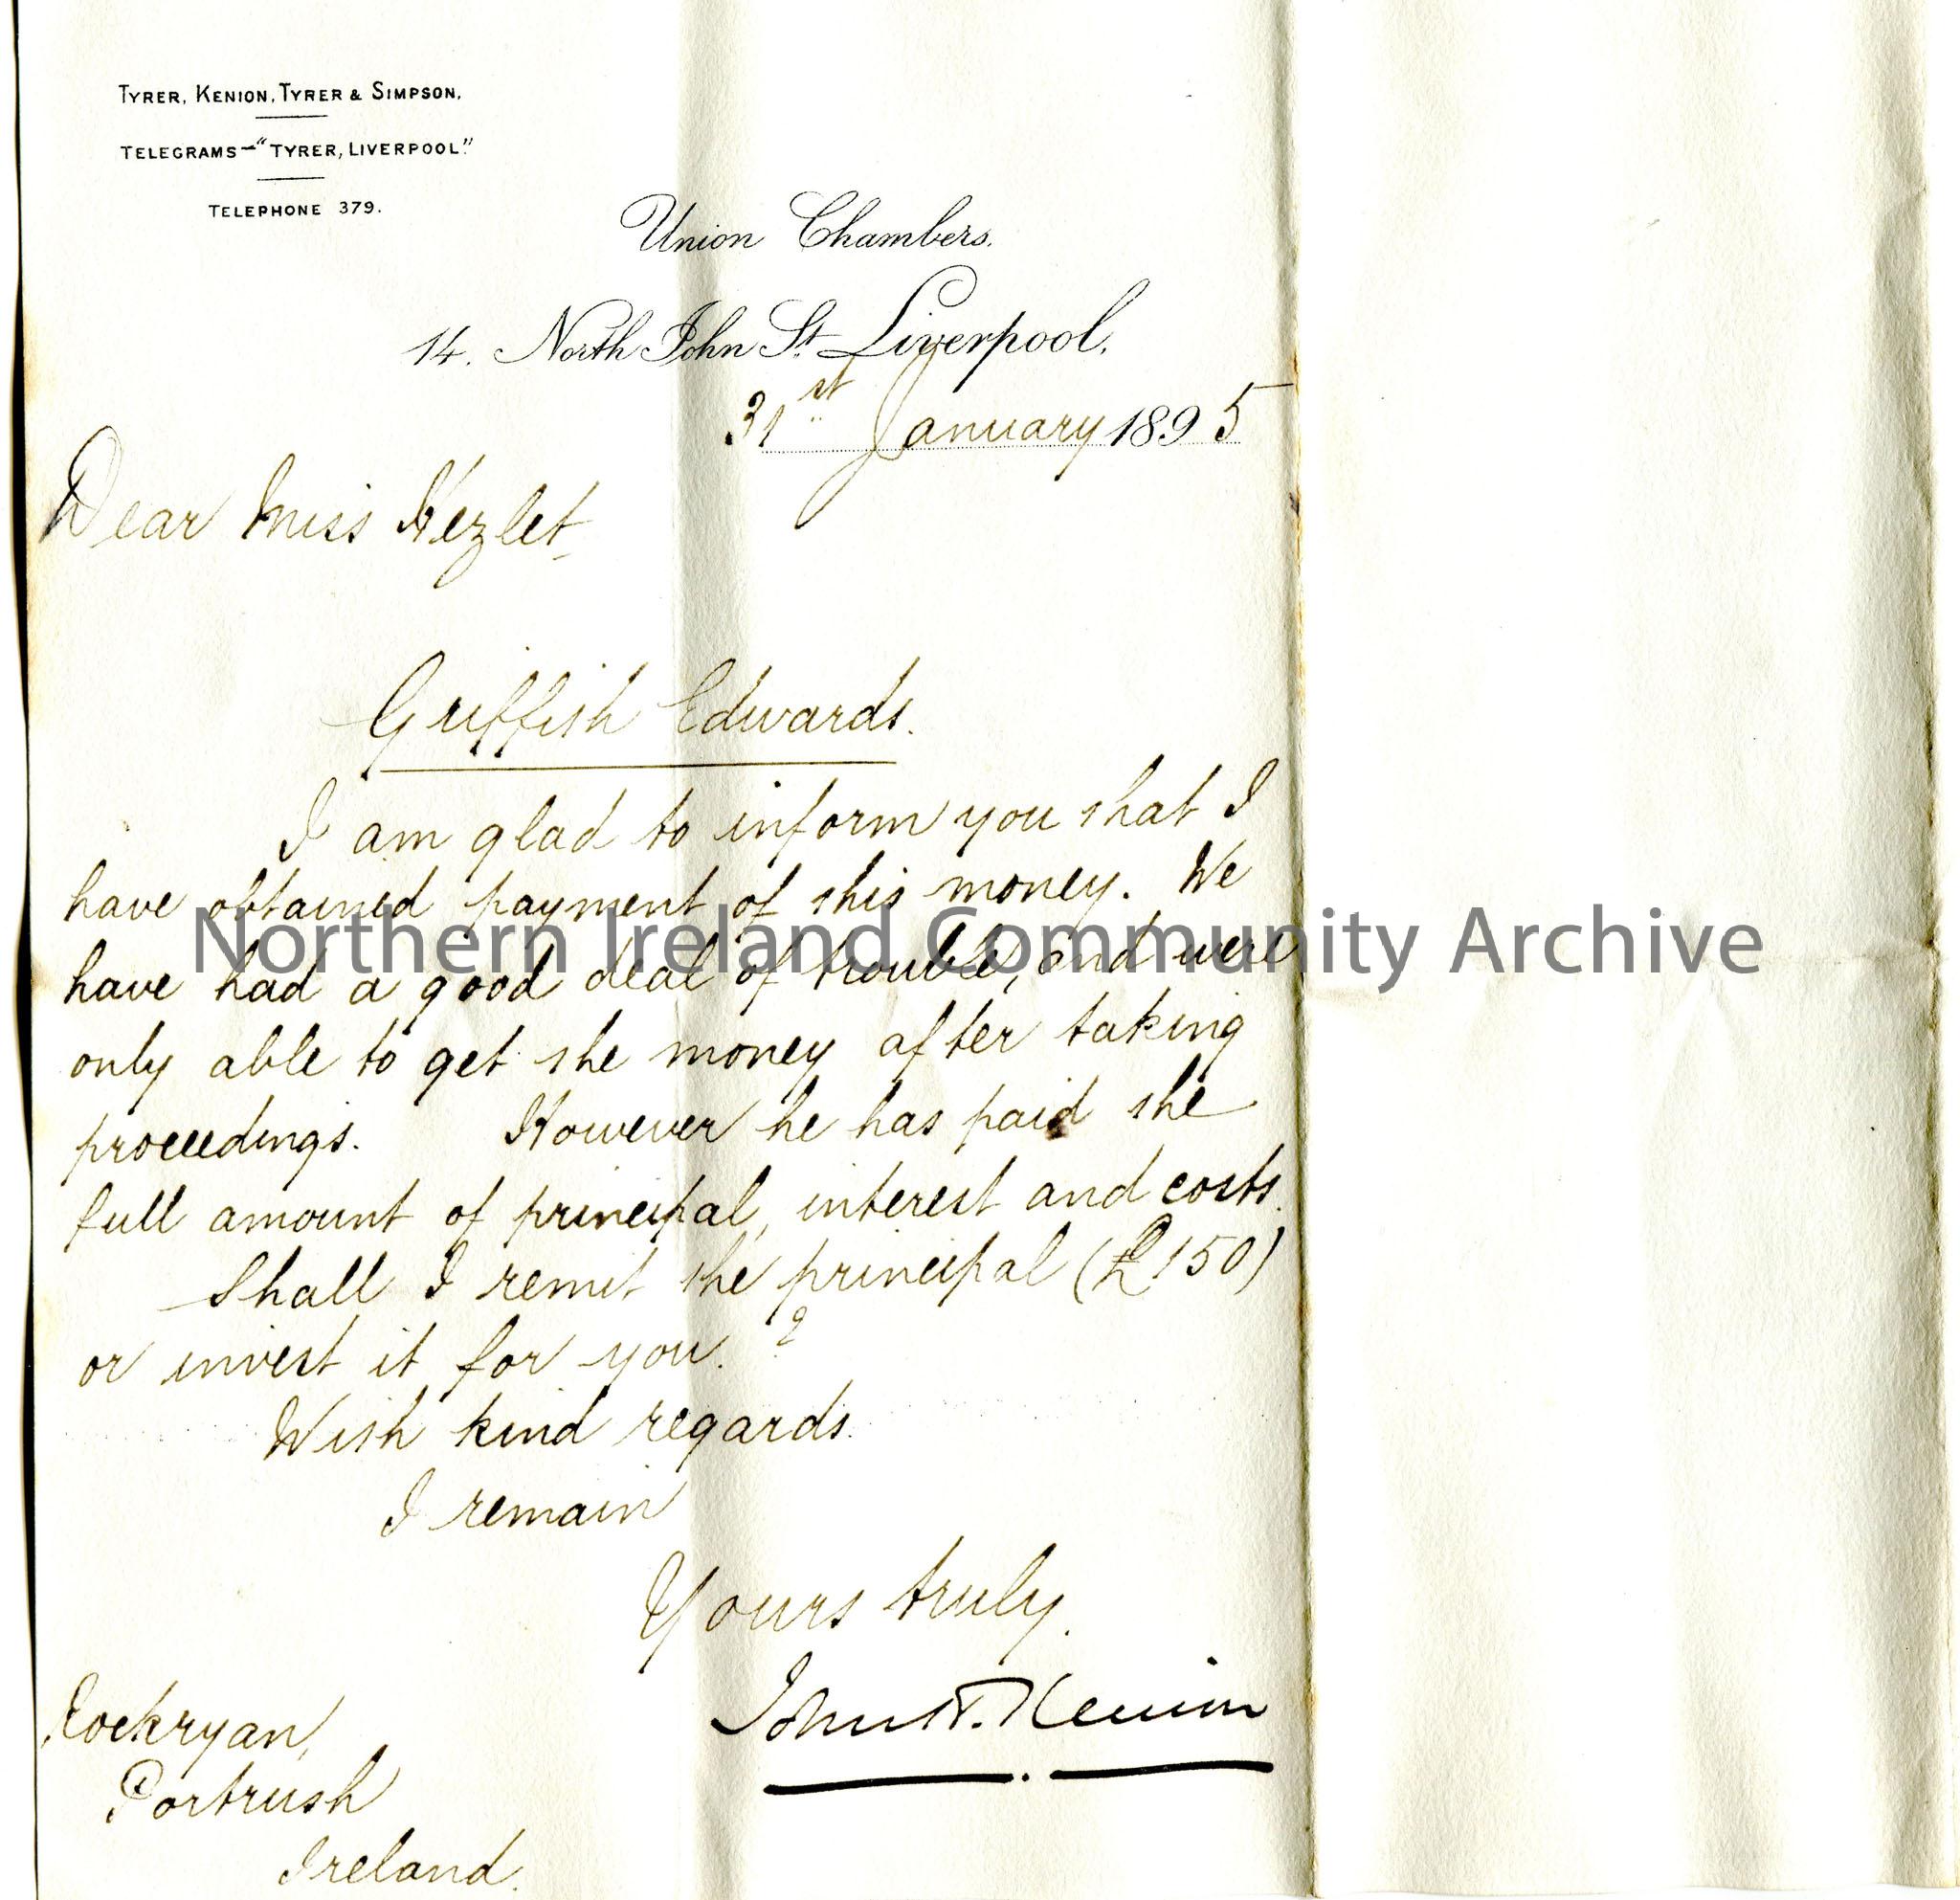 TYRER, KENION, TYRER & SIMPSON.
TELEGRAMS—"TYRER, LIVERPOOL."
TELEPHONE 379.
Union Chambers.
14. North John St. Liverpool.
31st January 1895
Dear Miss Hezlet,
Griffith Edwards.
I am glad to inform you that I
have obtained payment of this money. We
have had a good deal of trouble, and were
only able to get the money after taking
proceedings. However he has paid the
full amount of principal, interest and costs.
Shall I remit the principal (£150)
or invest it for you. ?
With kind regards.
I remain
Yours truly.
John N. Kenion
Rockryan,
Portrush
Ireland.
Northern Ireland Community Archive